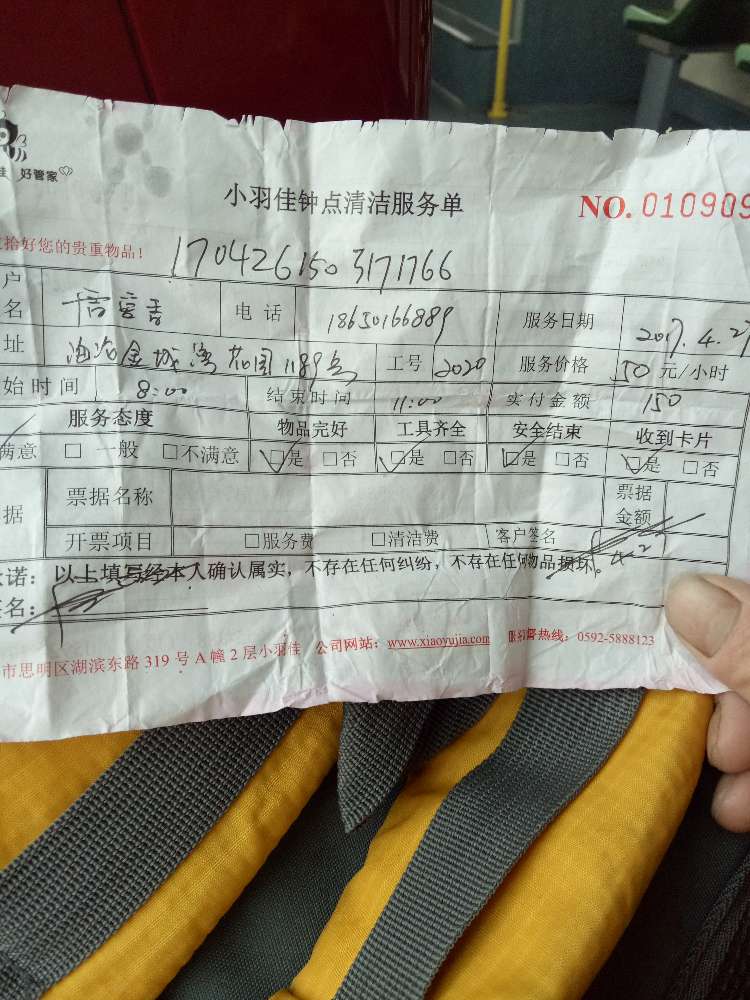 佳 好管家
小羽佳钟点清洁服务单 NO. 010909
拾好您的贵重物品！
170426150 3171766
户名 电话 18650166889 服务日期 2017.4.27
址 海沧金城湾花园1189号 工号 2020 服务价格 50 元/小时
始时间 8:00 结束时间 11:00 实付金额 150
服务态度 物品完好 工具齐全 安全结束 收到卡片
满意 □ 一般 □不满意 □是 □否 □是 □否 □是 □否 □是 □否
据 票据名称 票据金额
开票项目 □服务费 □清洁费 客户签名
诺：以上填写经本人确认属实，不存在任何纠纷，不存在任何物品损坏。
签名：
市思明区湖滨东路 319 号 A 幢 2 层小羽佳 公司网站：www.xiaoyujia.com 服务热线：0592-5888123